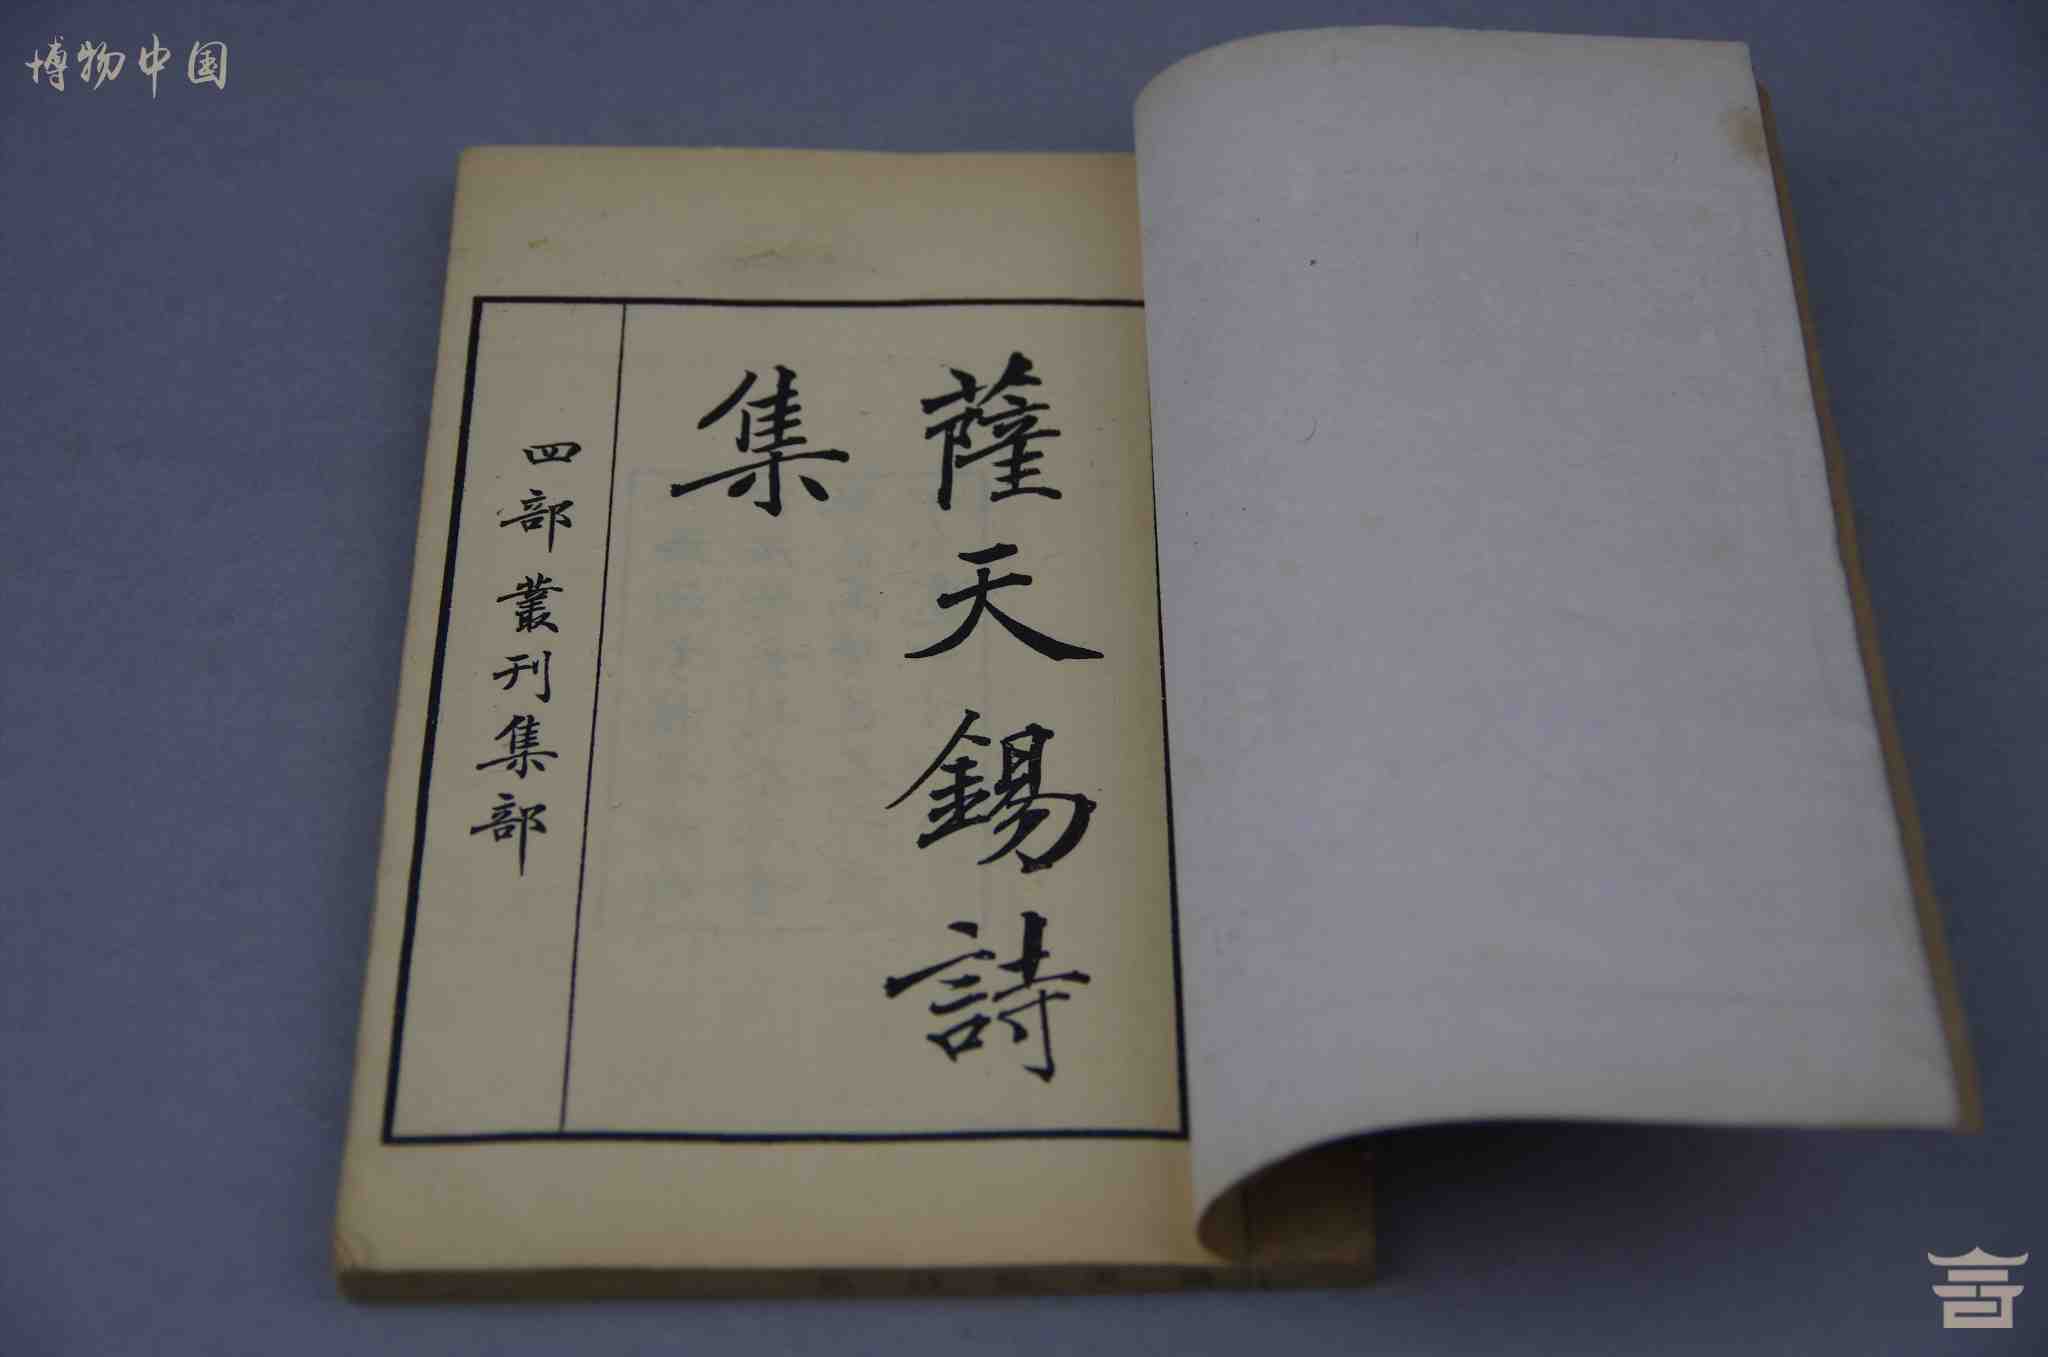 博物中国
薩天錫詩
集
四部叢刊集部